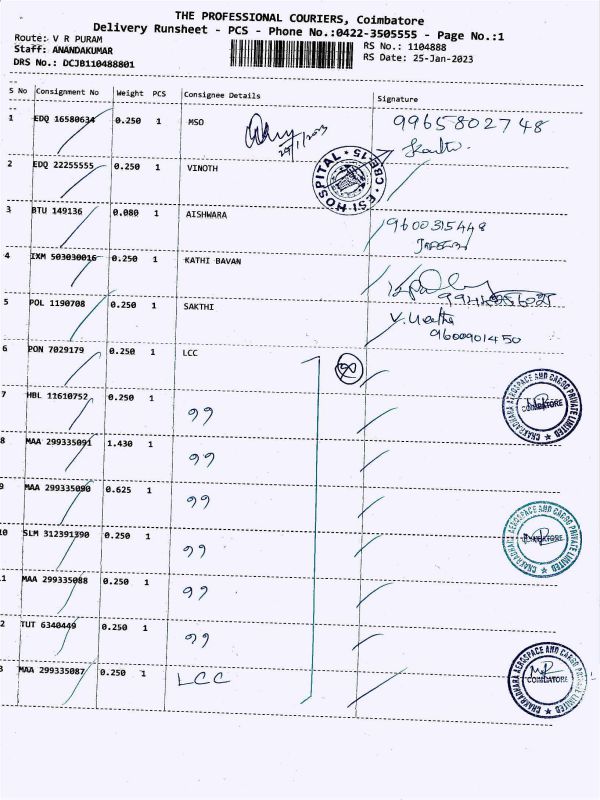 THE PROFESSIONAL COURIERS, Coimbatore
Delivery Runsheet - PCS - Phone No.:0422-3505555 - Page No.:1
Route: V R PURAM
RS No.: 1104888
Staff: ANANDAKUMAR
RS Date: 25-Jan-2023
DRS No.: DCJB110488801
S No Consignment No Weight PCS Consignee Details Signature
1 EDQ 16580634 0.250 1 MSO 9965802748
HOSPITAL ESI CBE-15
2 EDQ 22255555 0.250 1 VINOTH
3 BTU 149136 0.080 1 AISHWARA 9600315448
4 IXM 503030016 0.250 1 KATHI BAVAN
5 POL 1190708 0.250 1 SAKTHI
9600901450
6 PON 7029179 0.250 1 LCC
7 HBL 11610752 0.250 1 99
CHAKRADHARA AEROSPACE AND CARGO PRIVATE LIMITED COIMBATORE
8 MAA 299335091 1.430 1 99
9 MAA 299335090 0.625 1 99
10 SLM 312391390 0.250 1 99
CHAKRADHARA AEROSPACE AND CARGO PRIVATE LIMITED COIMBATORE
11 MAA 299335088 0.250 1 99
2 TUT 6340449 0.250 1 99
3 MAA 299335087 0.250 1 LCC
CHAKRADHARA AEROSPACE AND CARGO PRIVATE LIMITED COIMBATORE